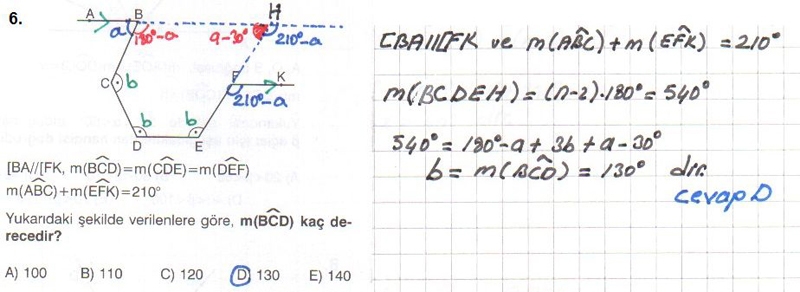 6.
A B H
a 180°-a a-30° 210°-a
C b F K
210°-a
b b
D E
[BA//[FK, m(BĈD)=m(CD̂E)=m(DÊF)
m(AB̂C)+m(EF̂K)=210°
Yukarıdaki şekilde verilenlere göre, m(BĈD) kaç de-
recedir?
A) 100 B) 110 C) 120 D) 130 E) 140
[BA//[FK ve m(AB̂C)+m(EF̂K)=210°
m(BCDEH)=(n-2).180°=540°
540°=180°-a+3b+a-30°
b=m(BĈD)=130° dir.
cevap D